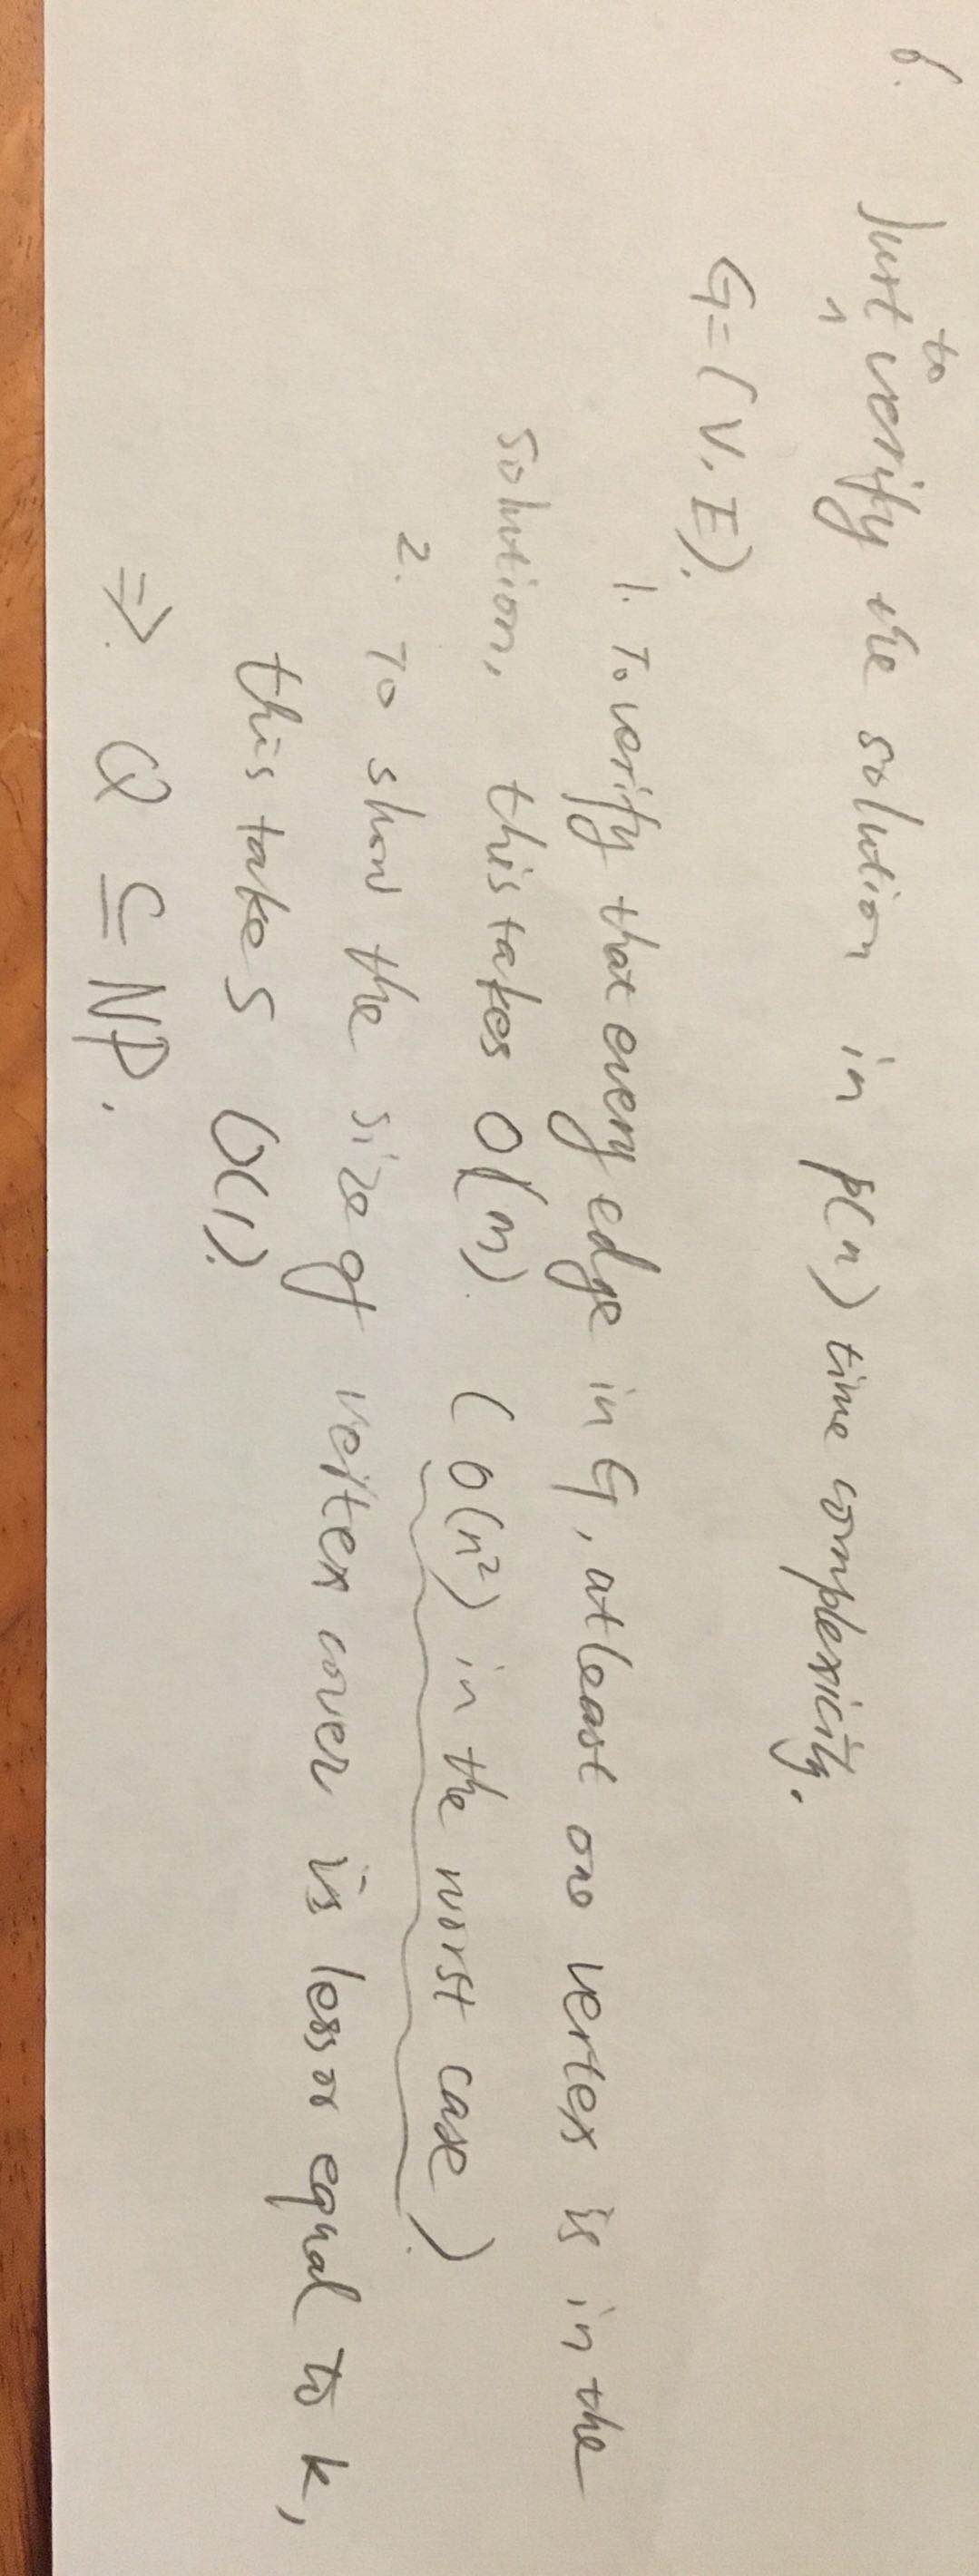 6.
Just to verify the solution in p(n) time complexicity.
G=(V, E).
1. To verify that every edge in G, at least one vertex is in the
solution, this takes O(m). (O(n²) in the worst case).
2. To show the size of vertex cover is less or equal to k,
this takes O(1).
⇒ Q ⊆ NP.